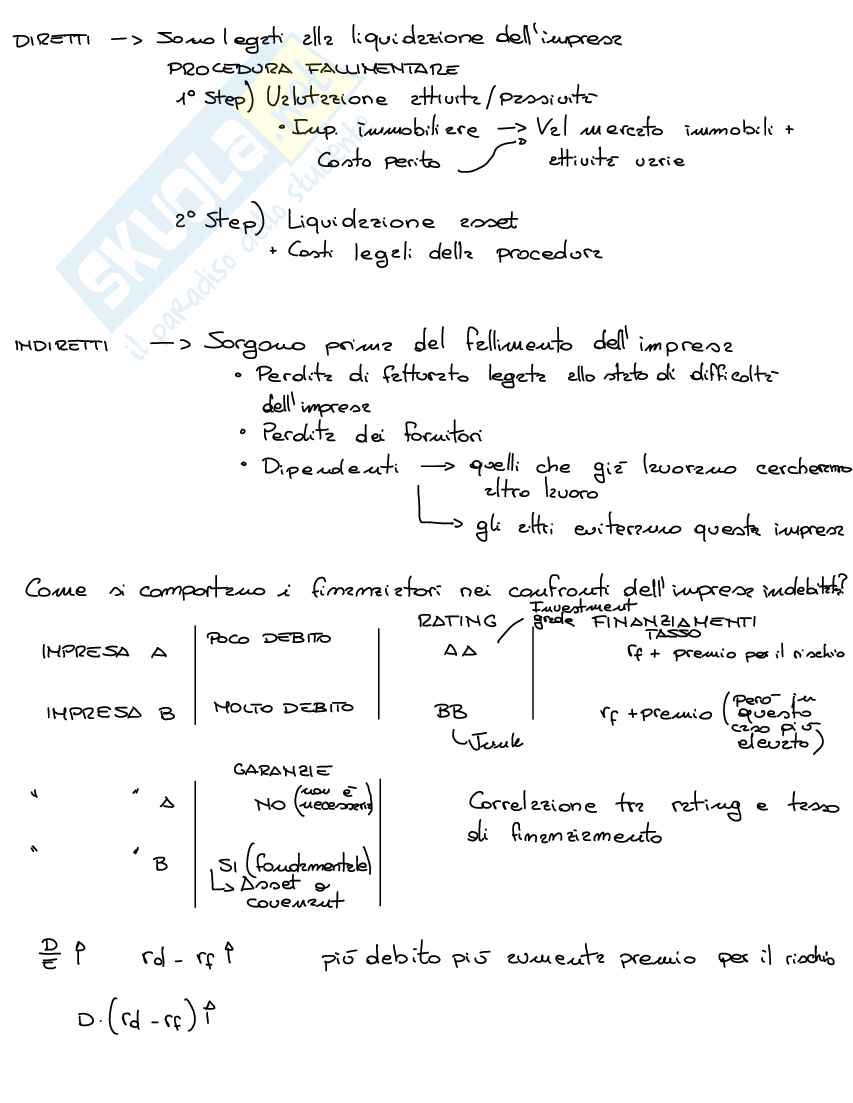 DIRETTI -> Sono legati alla liquidazione dell'impresa
PROCEDURA FALLIMENTARE
1° Step) Valutazione attività/passività
• Imp. immobiliere -> Val mercato immobili +
Costo perito attività varie
2° Step) Liquidazione asset
+ Costi legali della procedura
INDIRETTI -> Sorgono prima del fallimento dell'impresa
• Perdita di fatturato legata allo stato di difficoltà
dell'impresa
• Perdita dei fornitori
• Dipendenti -> quelli che già lavorano cercheranno
altro lavoro
-> gli altri eviteranno questa impresa
Come si comportano i finanziatori nei confronti dell'impresa indebitata?
RATING Investment grade FINANZIAMENTI
TASSO
IMPRESA A POCO DEBITO AA rf + premio per il rischio
IMPRESA B MOLTO DEBITO BB rf + premio (Però in
questo
caso più
elevato)
Junk
GARANZIE
" " A NO (non è
necessaria) Correlazione tra rating e tasso
di finanziamento
" " B SI (fondamentale)
-> Asset o
covenant
D/E ↑ rd - rf ↑ più debito più aumenta premio per il rischio
D·(rd - rf) ↑
SKUOLA.net
il paradiso dello studente